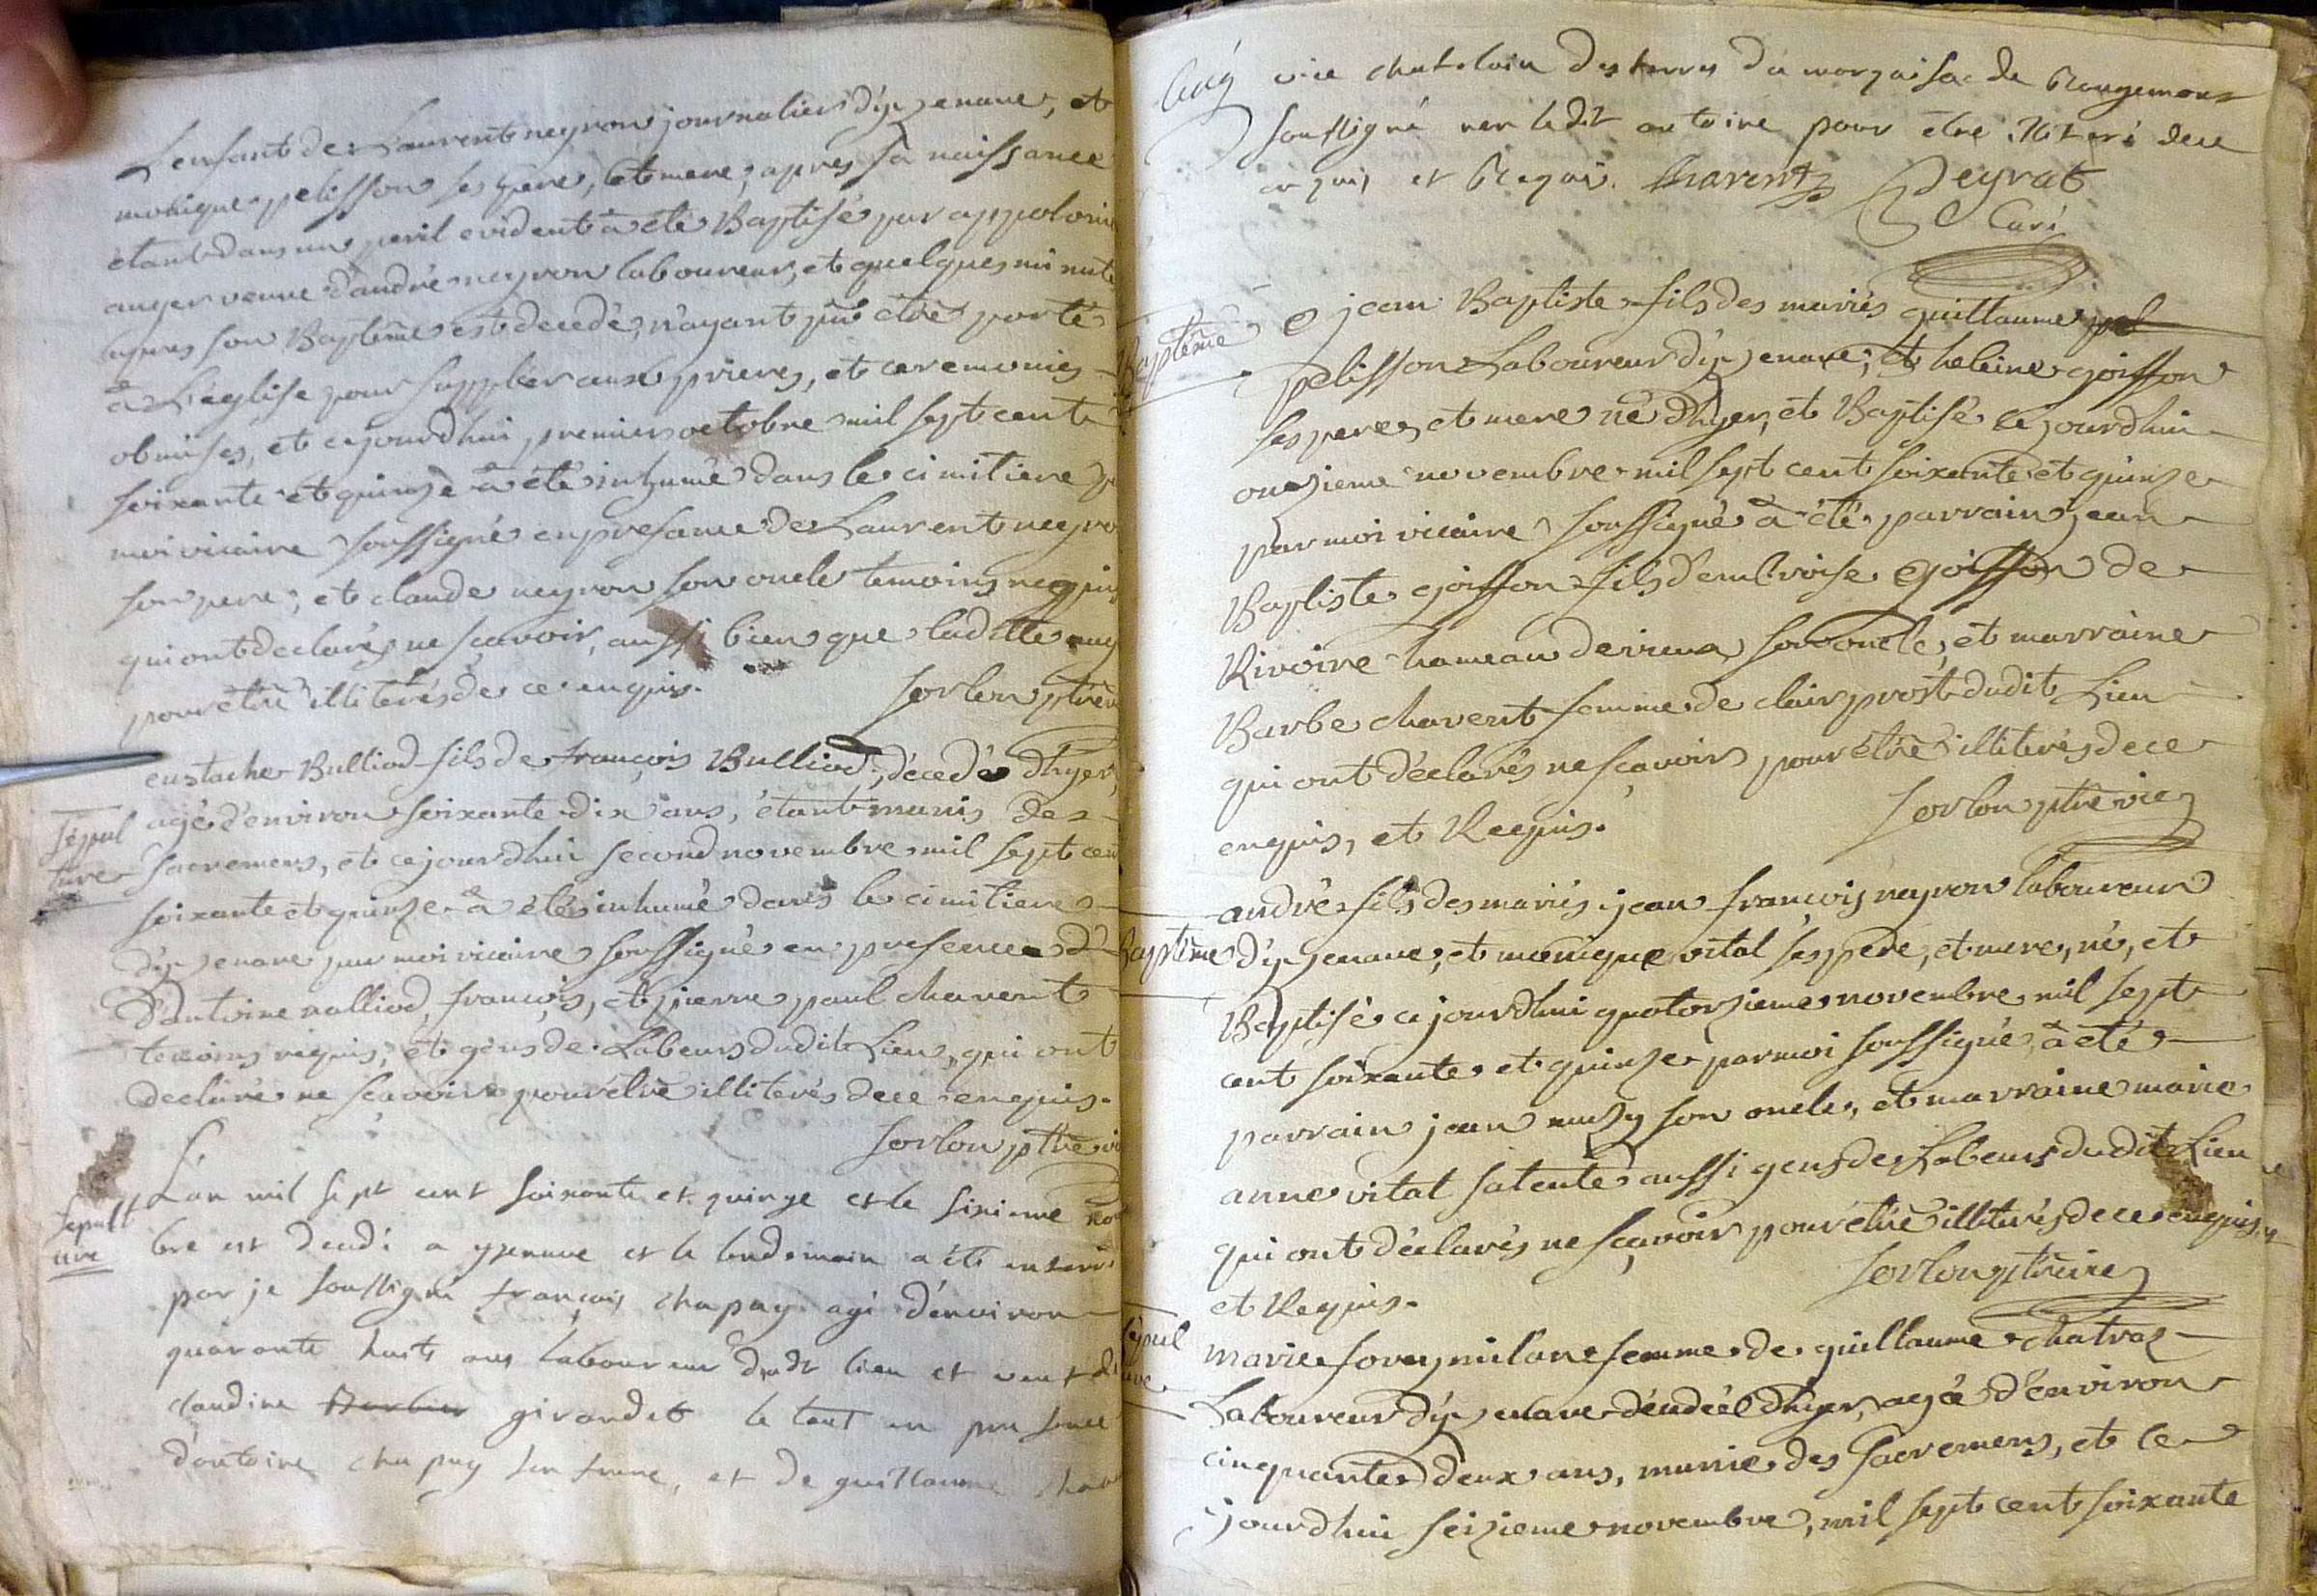 L'enfant de Laurent neyron journalier d'ypenave, et
monique pelisson ses pere, et mere; apres sa naissance
étant dans un peril evident à été Baptisé par appolonie
auger veuve d'andré neyron laboureur, et quelques minute
apres son Baptême est decedé, n'ayant pû être porté
à L'église pour supplèer aux prieres, et ceremonies
obmises, et cejourdhui premier octobre mil sept cent
soixante et quinze à été inhumé dans le cimitiere
moi vicaire soussigné en presance de Laurent neyro
son pere; et claude neyron son oncle temoins requis
qui ont declarés ne sçavoir, aussi bien que laditte aug
pour être illiterés de ce enquis.
sorlon ptre
eustache Bulliod fils de françois Bulliod, décedé d'hyer,
Sépul
ture
agé d'environ soixante dix ans, étant munis des
sacremens, et cejourdhui second novembre mil sept cen
soixante et quinze à été inhumé dans le cimitiere
d'ypenave par moi vicaire soussigné en presence d'
d'antoine nalliod, françois, et pierre paul chavent
temoins requis, et gens de Labeurs dudit Lieu, qui ont
declaré ne sçavoir pour être illiterés de ce enquis.
sorlon ptre vi
Sepult
ure
L'an mil sept cent soixante et quinze et le sixieme no
bre est decedé a ypenave et le lendemain a été enterré
par je soussigné françois chapuy agé d'environ
quarante huits ans laboureur dudt lieu et veuf de
claudine girandet le tout en presence
d'antoine chapuy son frere, et de guillaume chav
vice chatelain des terres du marquisac de Rougemont
soussigné non ledit antoine pour être illiteré de ce
enquis et Requis. Chavent Peyrat
Curé
Baptême
jean Baptiste fils des mariés guillaume pel
pelisson Laboureur d'ypenave; et heleine goiffon
ses pere, et mere né d'hyer, et Baptisé ce jourdhui
onzieme novembre mil sept cent soixante et quinze
par moi vicaire soussigné à été parrain jean
Baptiste goiffon fils d'embroise goiffon de
Rivoire hameau de vieux, son oncle, et marraine
Barbe chavent femme de clair prost dudit Lieu
qui ont déclarés ne sçavoir pour être illiterés de ce
enquis, et Requis.
sorlon ptre vic
andré fils des mariés jean françois neyron laboureur
Baptême
d'ypenave, et monique vital ses pere, et mere, né, et
Baptisé cejourdhui quatorzieme novembre mil sept
cent soixante et quinze par moi soussigné, à été
parrain jean muzy son oncle, et marraine marie
anne vital sa tente aussi gens de Labeurs dudit Lieu
qui ont déclarés ne sçavoir pour être illiterés de ce enquis,
et Requis.
sorlon ptre vic
Sépul
ure
marie femme de guillaume chatraz
Laboureur d'ypenave décedée d'hyer, agée d'environ
cinquante deux ans, munie des sacremens, et ce
jourdhui seizieme novembre, mil sept cent soixante